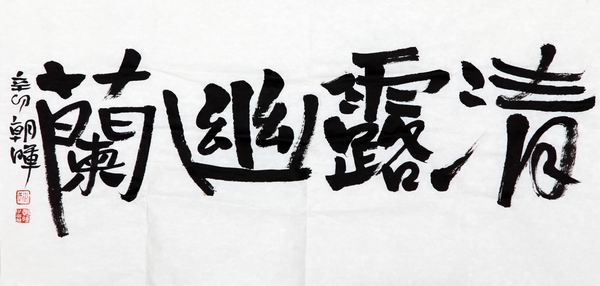 清露幽蘭
辛卯朝暉